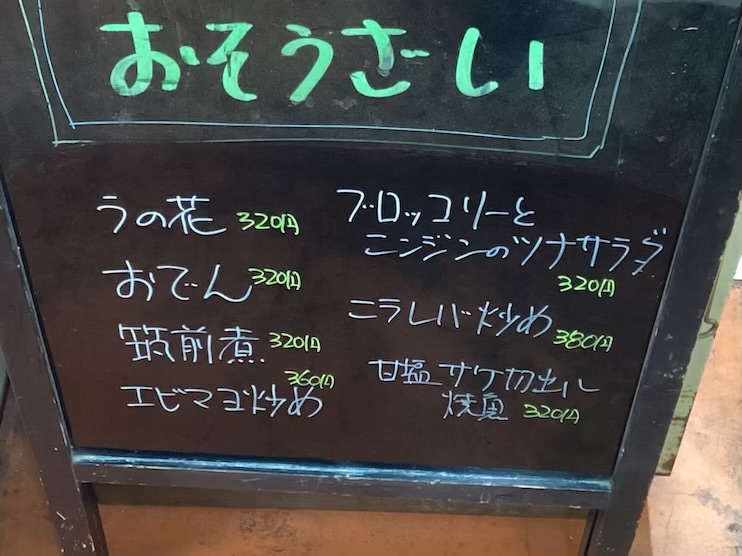 おそうざい
うの花 320円
おでん 320円
筑前煮 320円
エビマヨ炒め 360円
ブロッコリーと
ニンジンのツナサラダ
320円
ニラレバ炒め 380円
甘塩サケ切出し
焼魚 320円